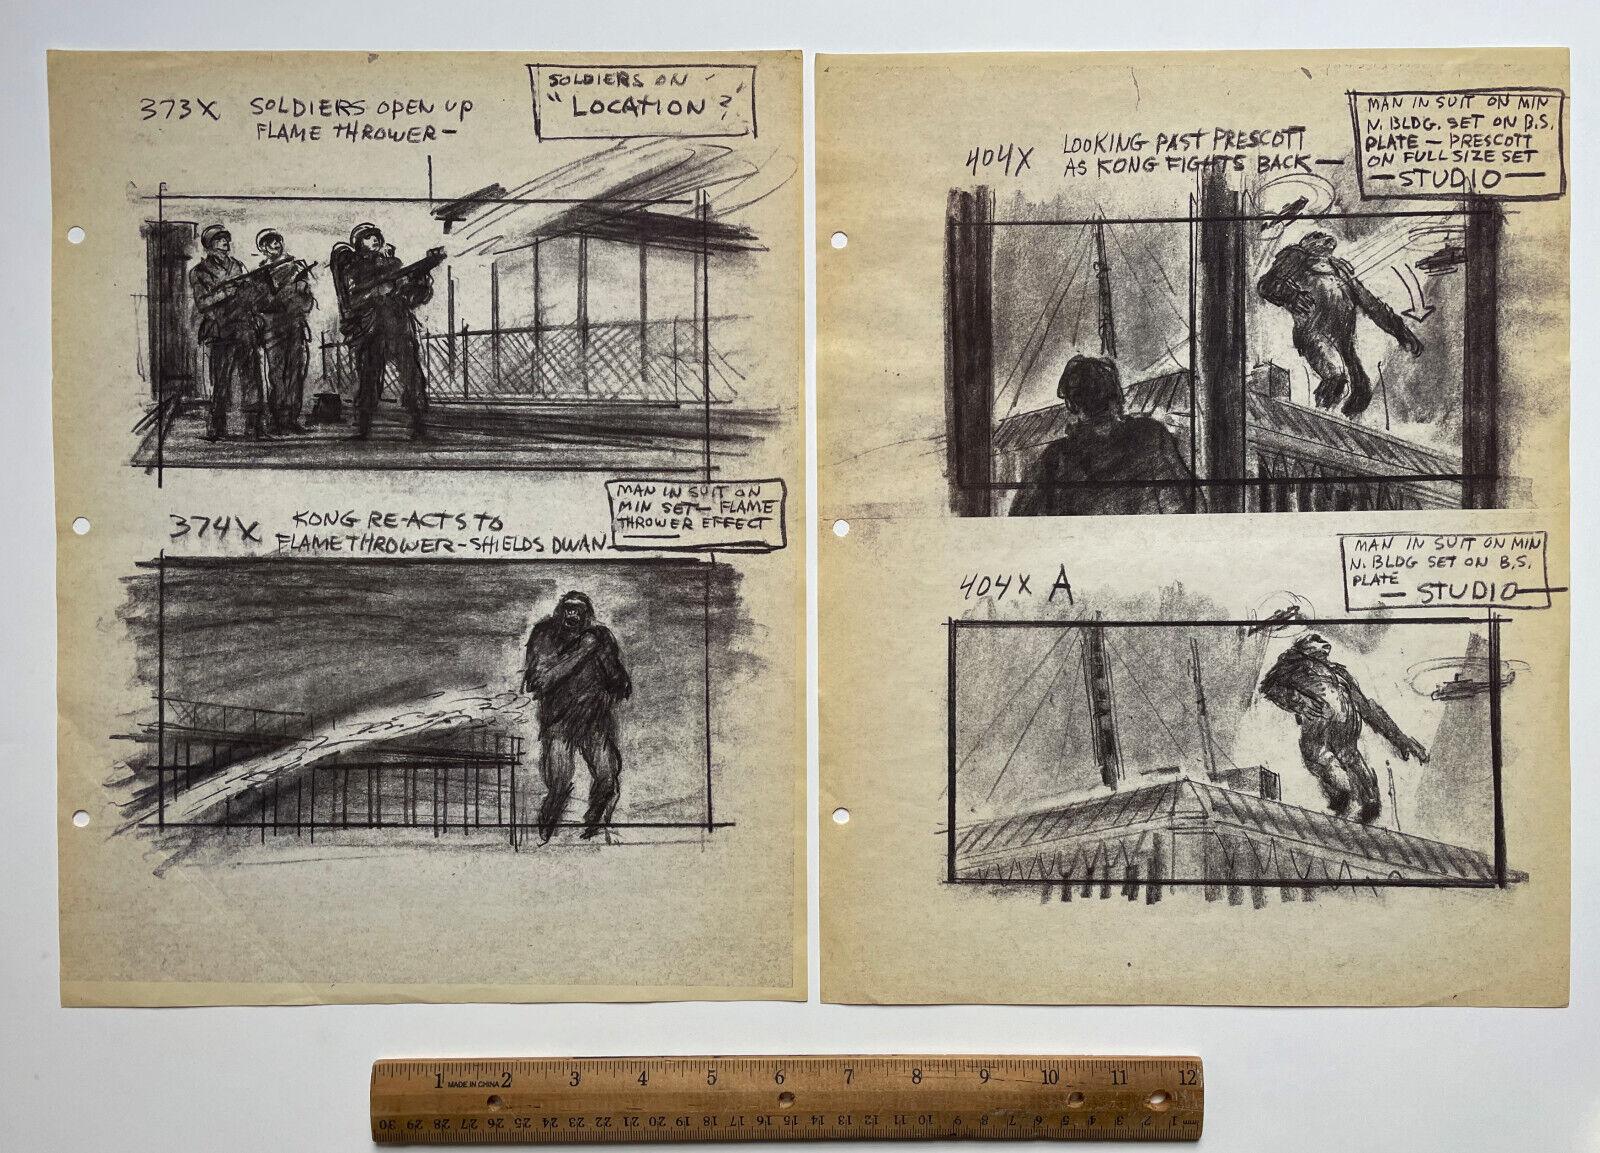 373X SOLDIERS OPEN UP
FLAME THROWER—
SOLDIERS ON
"LOCATION?
374X KONG RE-ACTS TO
FLAME THROWER-SHIELDS DWAN
MAN IN SUIT ON
MIN SET- FLAME
THROWER EFFECT
404X LOOKING PAST PRESCOTT
AS KONG FIGHTS BACK—
MAN IN SUIT ON MIN
N. BLDG. SET ON B.S.
PLATE — PRESCOTT
ON FULL SIZE SET
—STUDIO—
404X A
MAN IN SUIT ON MIN
N. BLDG SET ON B.S.
PLATE
— STUDIO—
1 MADE IN CHINA 2 3 4 5 6 7 8 9 10 11 12
30 29 28 27 26 25 24 23 22 21 20 19 18 17 16 15 14 13 12 11 10 9 8 7 6 5 4 3 2 1